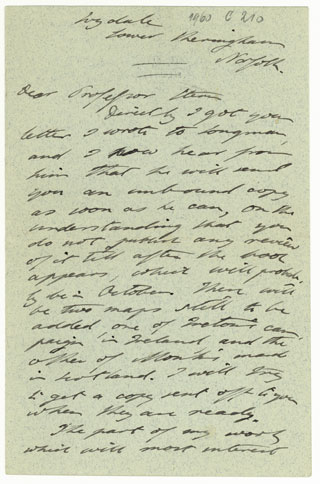 Lyndale
1960 C 210
Lower Sheringham
Norfolk.
Dear Professor Stern
Directly I got your
letter I wrote to Longman,
and I now hear from
him that he will send
you an unbound copy
as soon as he can, on the
understanding that you
do not publish any review
of it till after the book
appears, which will probab-
ly be in October. There will
be two maps still to be
added, one of Ireton's cam
paign in Ireland and the
other of Monk's march
in Scotland. I will try
to get a copy sent off to you
when they are ready.
The part of my work
which will most interest